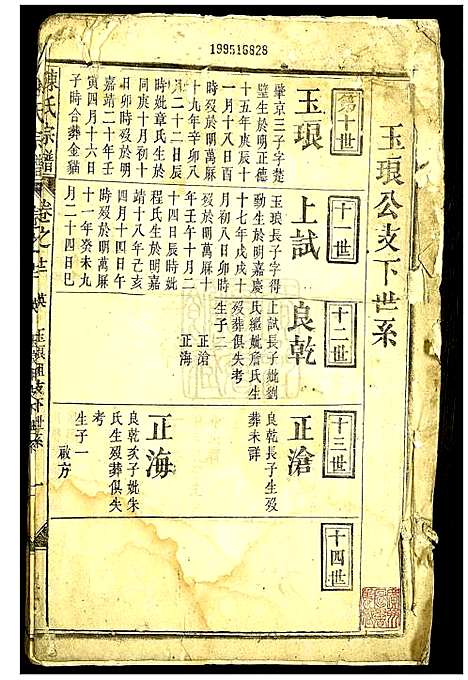 199516828
玉琅公支下世系
第十世
玉琅
肇京三子字楚
璧生於明正德
十五年庚辰十
一月十八日酉
時歿於明萬厤
十九年辛卯八
月二十二日辰
時妣章氏生於
同庚十月初十
日卯時歿於明
嘉靖二十年壬
寅四月十六日
子時合葬金貓
十一世
上試
玉琅長子字得
勳生於明嘉慶
十七年戊戌十
月初八日卯時
歿於明萬厤十
年壬午十月二
十四日辰時妣
程氏生於明嘉
靖十八年乙亥
四月十四日午
時歿於明萬厤
十一年癸未九
月二十四日巳
十二世
良乾
上試長子妣劉
氏繼妣詹氏生
歿葬俱失考
生子二
正滄
正海
十三世
正滄
良乾長子生歿
葬未詳
正海
良乾次子妣朱
氏生歿葬俱失
考
生子一
啟方
十四世
陳氏宗譜
卷之十二
玉琅祖支下世系
一